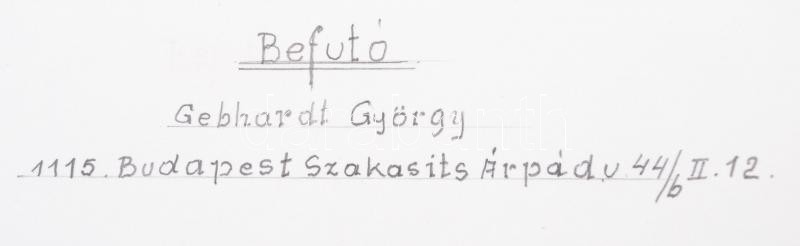 Befutó
Gebhardt György
1115. Budapest Szakasits Árpád u. 44/b II. 12.